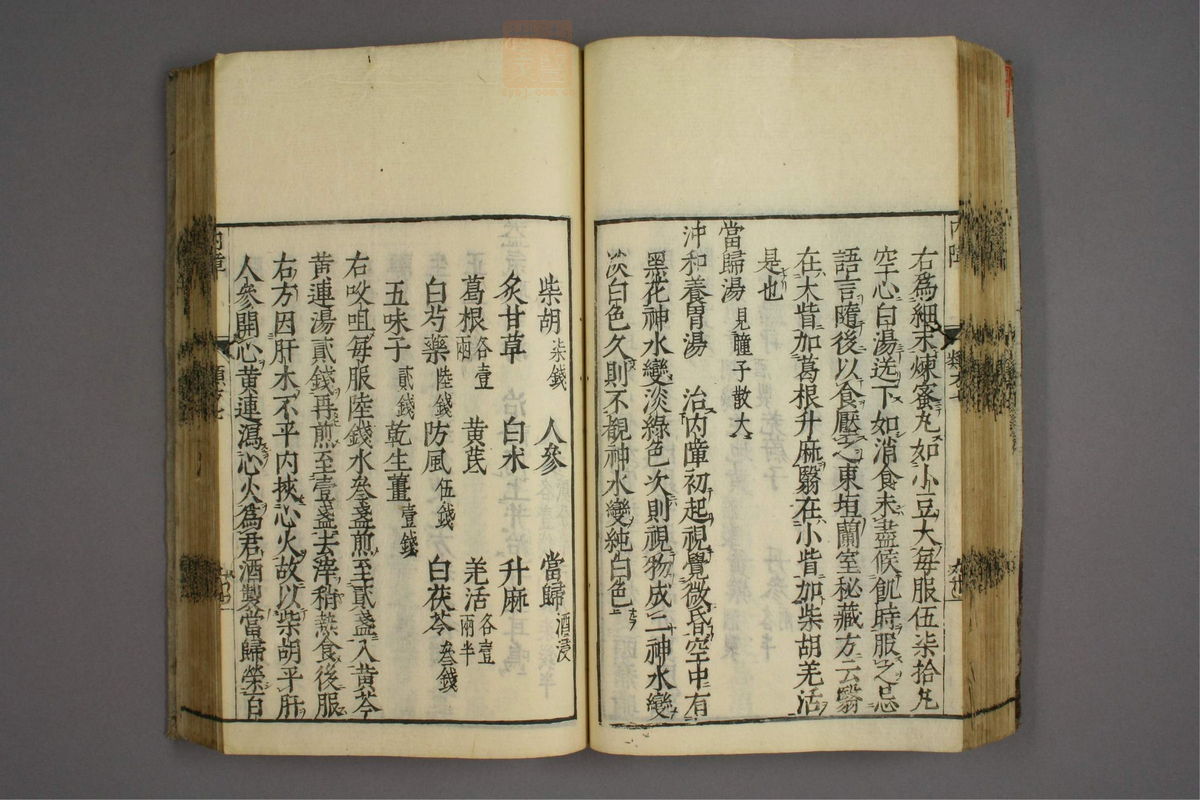 右爲細末煉蜜丸如小豆大每服伍柒拾丸
空心白湯送下如消食未盡候飢時服之忌
語言隨後以食壓之東垣蘭室秘藏方云翳
在大眥加葛根升麻翳在小眥加柴胡羌活
是也
當歸湯 見瞳子散大
沖和養胃湯 治內障初起視覺微昏空中有
黑花神水變淡綠色次則視物成二神水變
淡白色久則不覩神水變純白色
柴胡 柒錢 人參 當歸 酒浸
炙甘草 白朮 升麻
葛根 各壹兩 黄芪 羌活 各壹兩半
白芍藥 陸錢 防風 伍錢 白茯苓 叁錢
五味子 貳錢 乾生薑 壹錢
右㕮咀每服陸錢水叁盞煎至貳盞入黄芩
黄連湯貳錢再煎至壹盞去滓稍熱食後服
右方因肝木不平內挾心火故以柴胡平肝
人參開心黄連瀉心火爲君酒製當歸榮百
內障